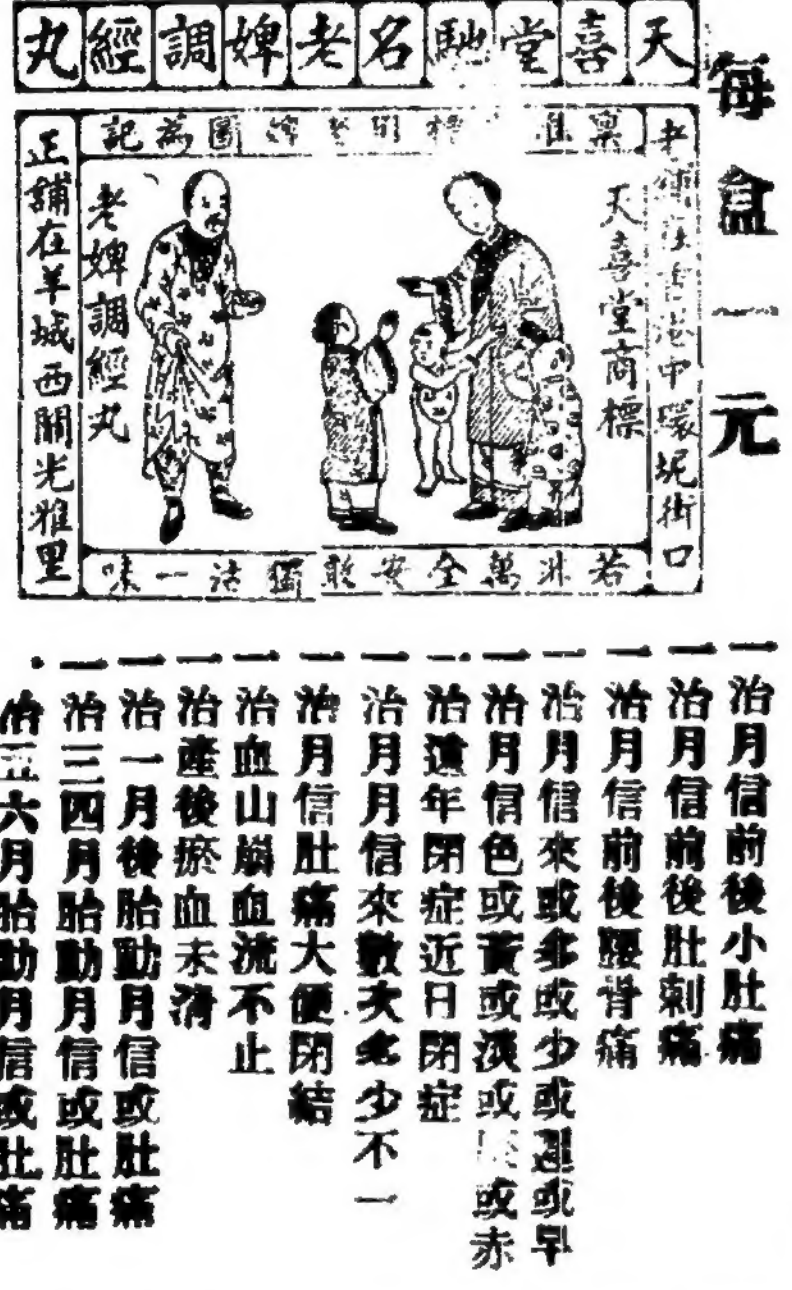 每盒一元
天喜堂馳名老婢調經丸
老鋪在香港中環坭街口
稟准 標用老婢圖為記
正鋪在羊城西關光雅里
天喜堂商標
老婢調經丸
若非萬全安敢獨沽一味
一治月信前後小肚痛
一治月信前後肚刺痛
一治月信前後腰背痛
一治月信來或多或少或遲或早
一治月信色或黃或淡或 或赤
一治遠年閉症近日閉症
一治月月信來數次多少不一
一治月信肚痛大便閉結
一治血山崩血流不止
一治產後瘀血未清
一治一月後胎動月信或肚痛
一治三四月胎動月信或肚痛
治五六月胎動月信或肚痛